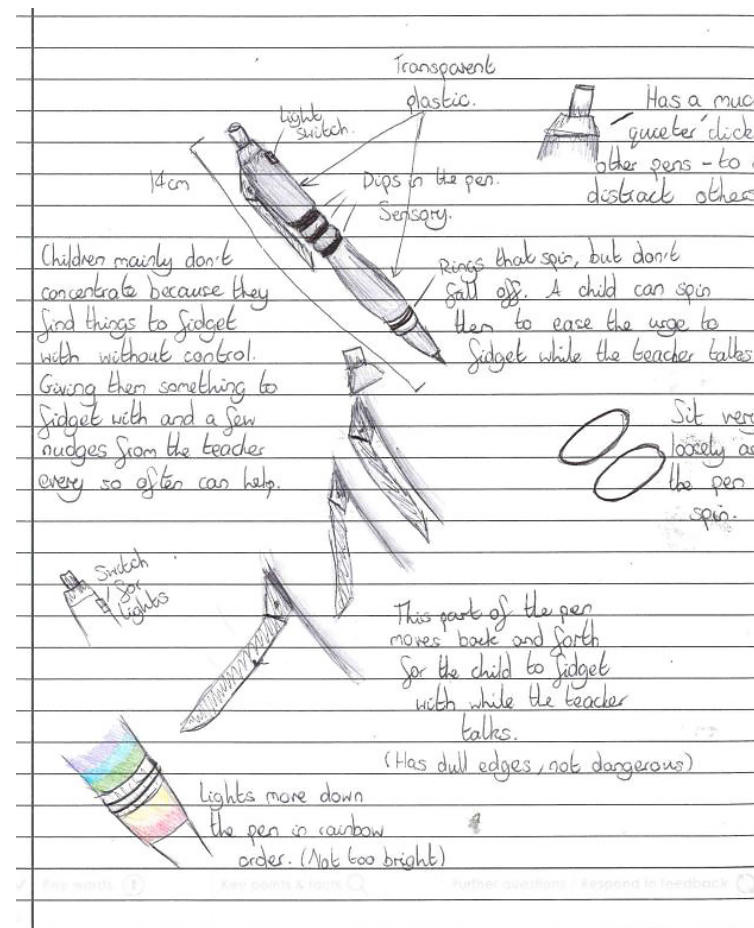 Transparent
plastic.
Light
switch.
14cm
Dips in the pen.
Sensory.
Has a muc
quieter 'click
other pens - to
distract others
Children mainly don't
concentrate because they
find things to fidget
with without control.
Giving them something to
fidget with and a few
nudges from the teacher
every so often can help.
Rings that spin, but don't
fall off. A child can spin
them to ease the urge to
fidget while the teacher talks
Sit very
loosely
the pen
spin.
Switch
for
lights
This part of the pen
moves back and forth
for the child to fidget
with while the teacher
talks.
(Has dull edges, not dangerous)
Lights move down
the pen in rainbow
order. (Not too bright)
Key words
Key points & facts
Further questions / Respond to feedback